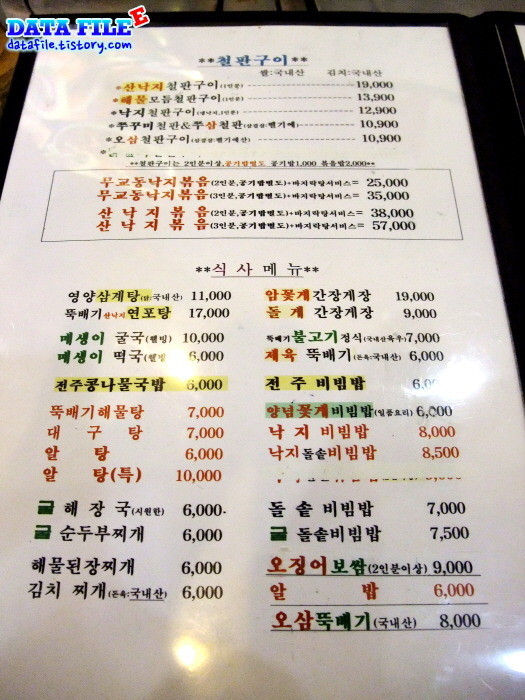 DATA FILE E
datafile.tistory.com
**철판구이**
쌀:국내산 김치:국내산
*산낙지철판구이(1인분) 19,000
*해물모듬철판구이(1인분) 13,900
*낙지철판구이(냉낙지,1인분) 12,900
*쭈꾸미철판&쭈삼철판(삼겹살:벨기에) 10,900
*오삼철판구이(삼겹살:벨기에산) 10,900
**철판구이는 2인분이상,공기밥별도 공기밥1,000 볶음밥2,000**
무교동낙지볶음(2인분,공기밥별도)+바지락탕서비스= 25,000
무교동낙지볶음(3인분,공기밥별도)+바지락탕서비스= 35,000
산낙지볶음(2인분,공기밥별도)+바지락탕서비스= 38,000
산낙지볶음(3인분,공기밥별도)+바지락탕서비스= 57,000
**식사메뉴**
영양삼계탕(닭:국내산) 11,000
뚝배기산낙지연포탕 17,000
매생이 굴국(웰빙) 10,000
매생이 떡국(웰빙) 6,000
전주콩나물국밥 6,000
뚝배기해물탕 7,000
대구탕 7,000
알탕 6,000
알탕(특) 10,000
굴해장국(시원한) 6,000
굴순두부찌개 6,000
해물된장찌개 6,000
김치찌개(돈육:국내산) 6,000
암꽃게간장게장 19,000
돌게간장게장 9,000
뚝배기불고기정식(국내산육우)7,000
제육뚝배기(돈육:국내산) 6,000
전주비빔밥
양념꽃게비빔밥(일품요리) 6,000
낙지비빔밥 8,000
낙지돌솥비빔밥 8,500
돌솥비빔밥 7,000
굴돌솥비빔밥 7,500
오징어보쌈(2인분이상) 9,000
알밥 6,000
오삼뚝배기(국내산) 8,000